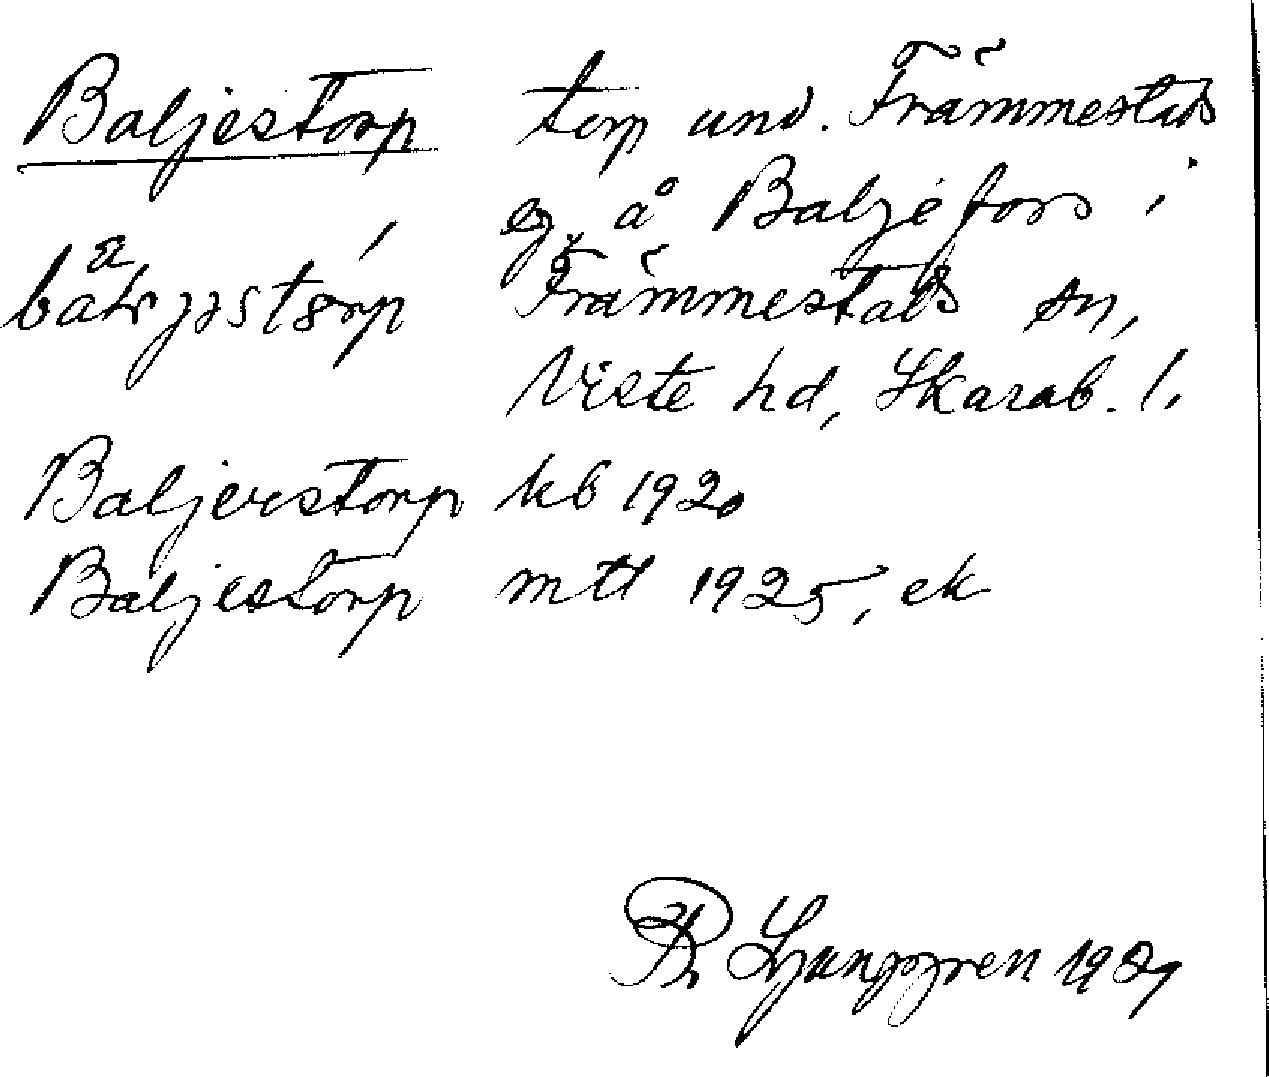 Baljestorp torp und. Främmestads
eg. å Baljefors i
Främmestads sn,
Viste hd, Skarab. l.
Baljerstorp kb 1920
Baljestorp mtl 1925, ek
R Ljunggren